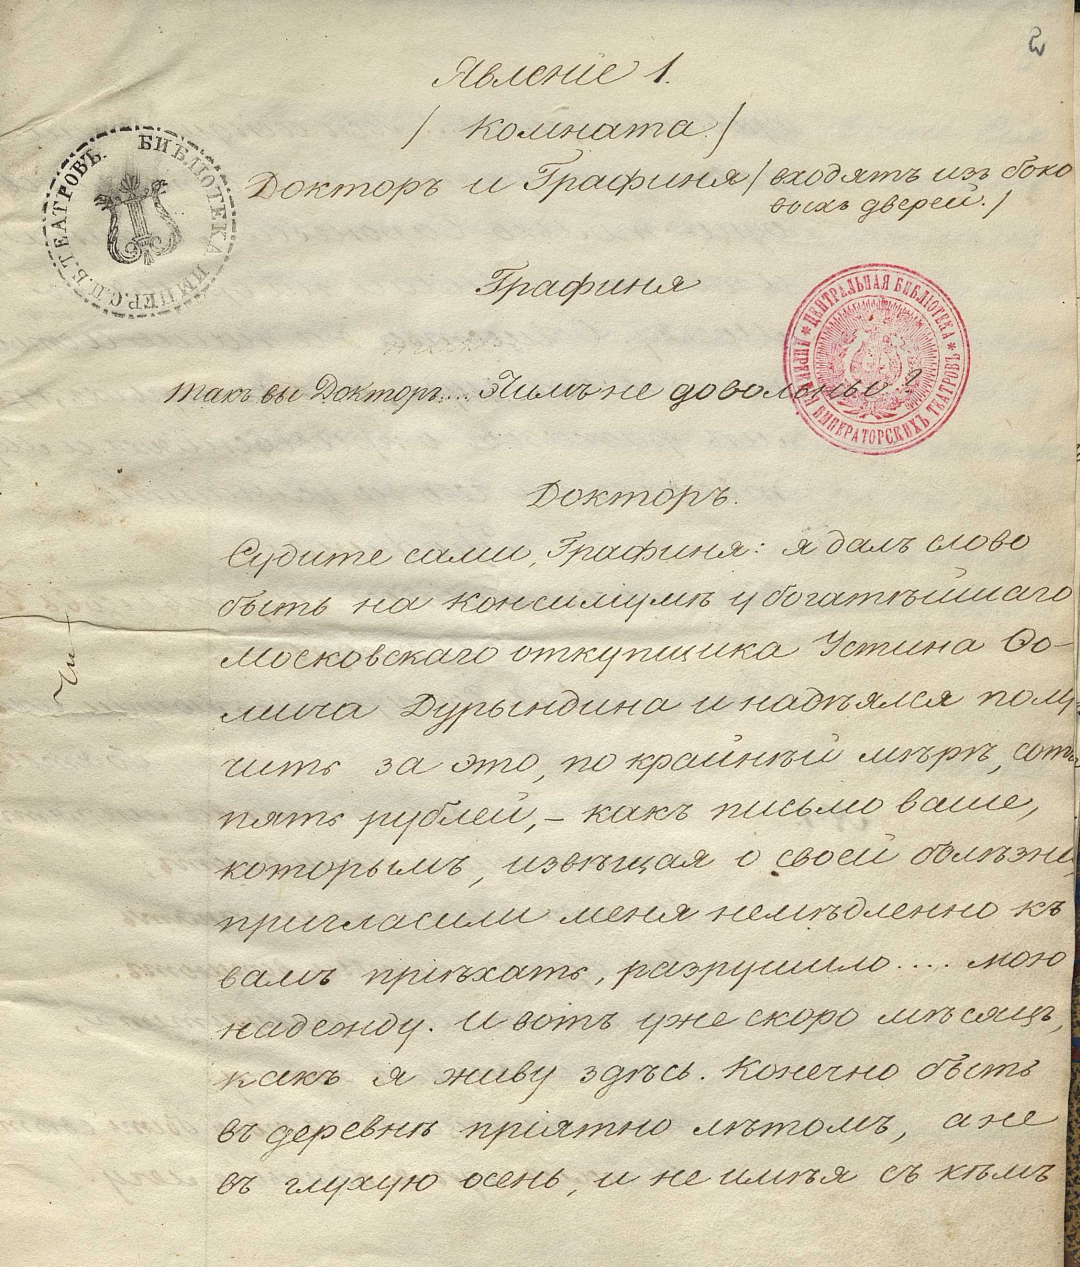 2
Явленіе 1.
/ Комната. /
Докторъ и Графиня / входятъ изъ боко
выхъ дверей. /
БИБЛІОТЕКА ИМПЕР. С.П.Б. ТЕАТРОВЪ.
Графиня
ЦЕНТРАЛЬНАЯ БИБЛІОТЕКА * ИМПЕРАТОРСКИХЪ ТЕАТРОВЪ *
такъ вы Докторъ.... Чимъ не довольны?
Докторъ.
Судите сами, Графиня: я далъ слово
быть на консилиумѣ у богатѣйшаго
московскаго откупщика Устина Ѳо-
мича Дурындина и надѣялся полу
чить за это, по крайнѣй мѣрѣ, сотъ
пять рублей, – какъ письмо ваше,
которымъ, извѣщая о своей болѣзни
пригласили меня немѣдленно къ
вамъ пріѣхать, разрушило.... мою
надежду. И вотъ уже скоро мѣсяцъ,
какъ я живу здѣсь. Конечно быть
въ деревнѣ пріятно лѣтомъ, а не
въ глухую осень, и не имѣя съ кѣмъ